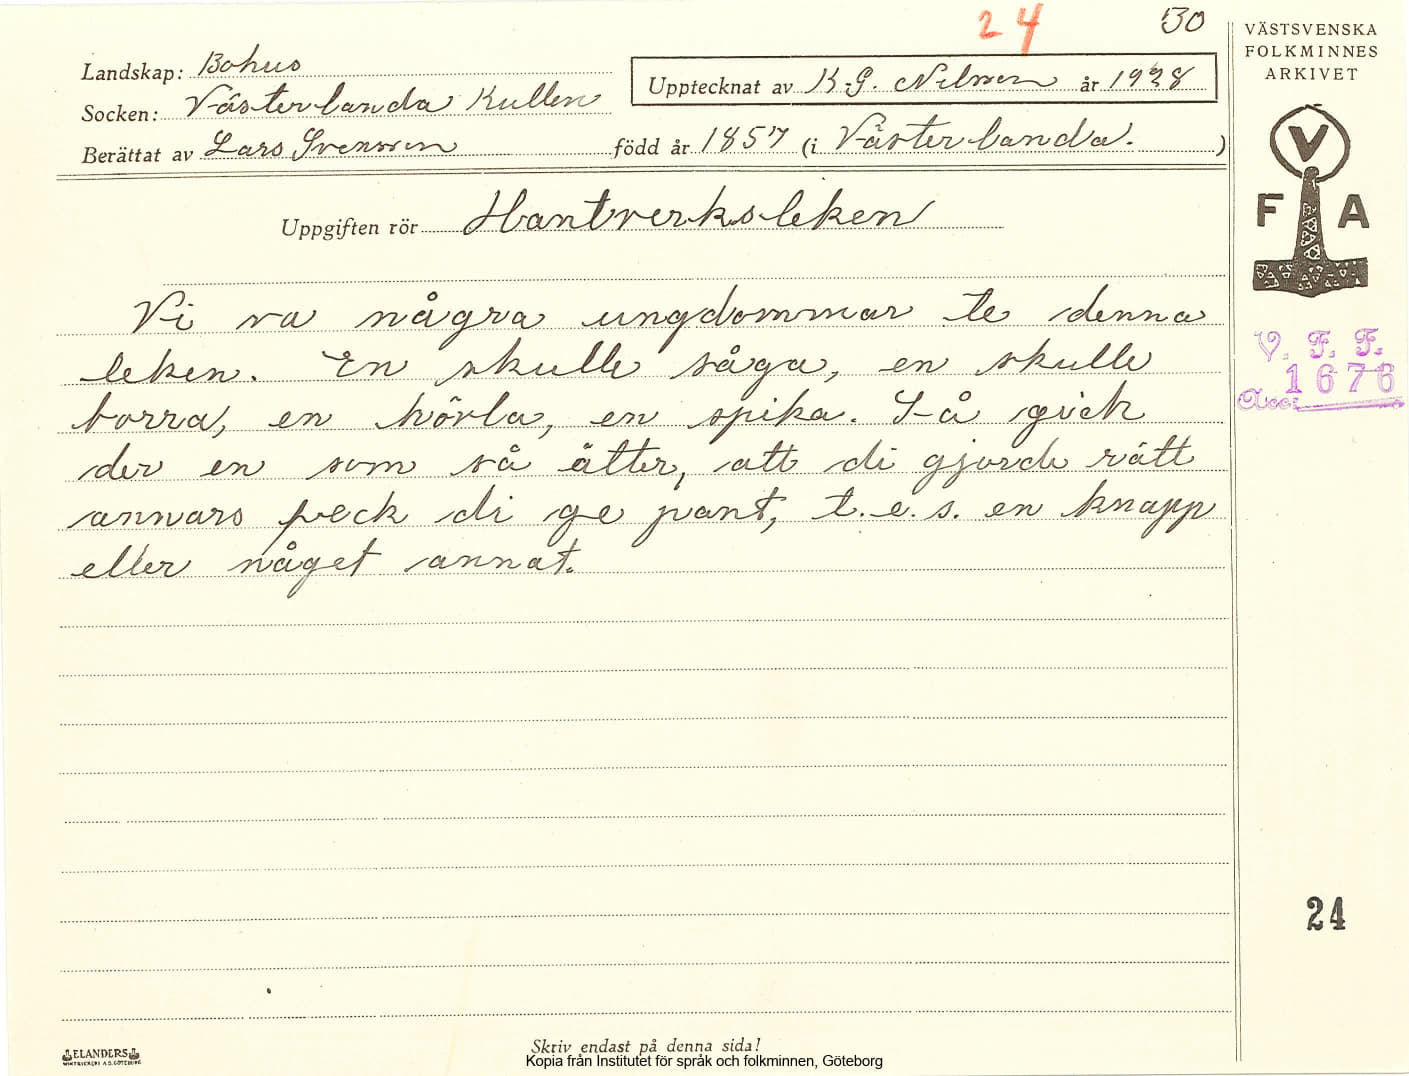 24 30
VÄSTSVENSKA
FOLKMINNES
ARKIVET
Landskap: Bohus
Upptecknat av K.G. Nilsson år 1928
Socken: Västerlanda Kullen
Berättat av Lars Svensson född år 1857 (i Västerlanda.)
V
F A
Uppgiften rör Hantverksleken
Vi va några ungdommar te denna
leken. En skulle såga, en skulle
borra, en hövla, en spika. Så gick
der en som så ätter, att di gjorde rätt
annars feck di ge pant, t.e.s. en knapp
eller något annat.
V. F. F.
1676
Acc:
24
ELANDERS
Skriv endast på denna sida!
Kopia från Institutet för språk och folkminnen, Göteborg